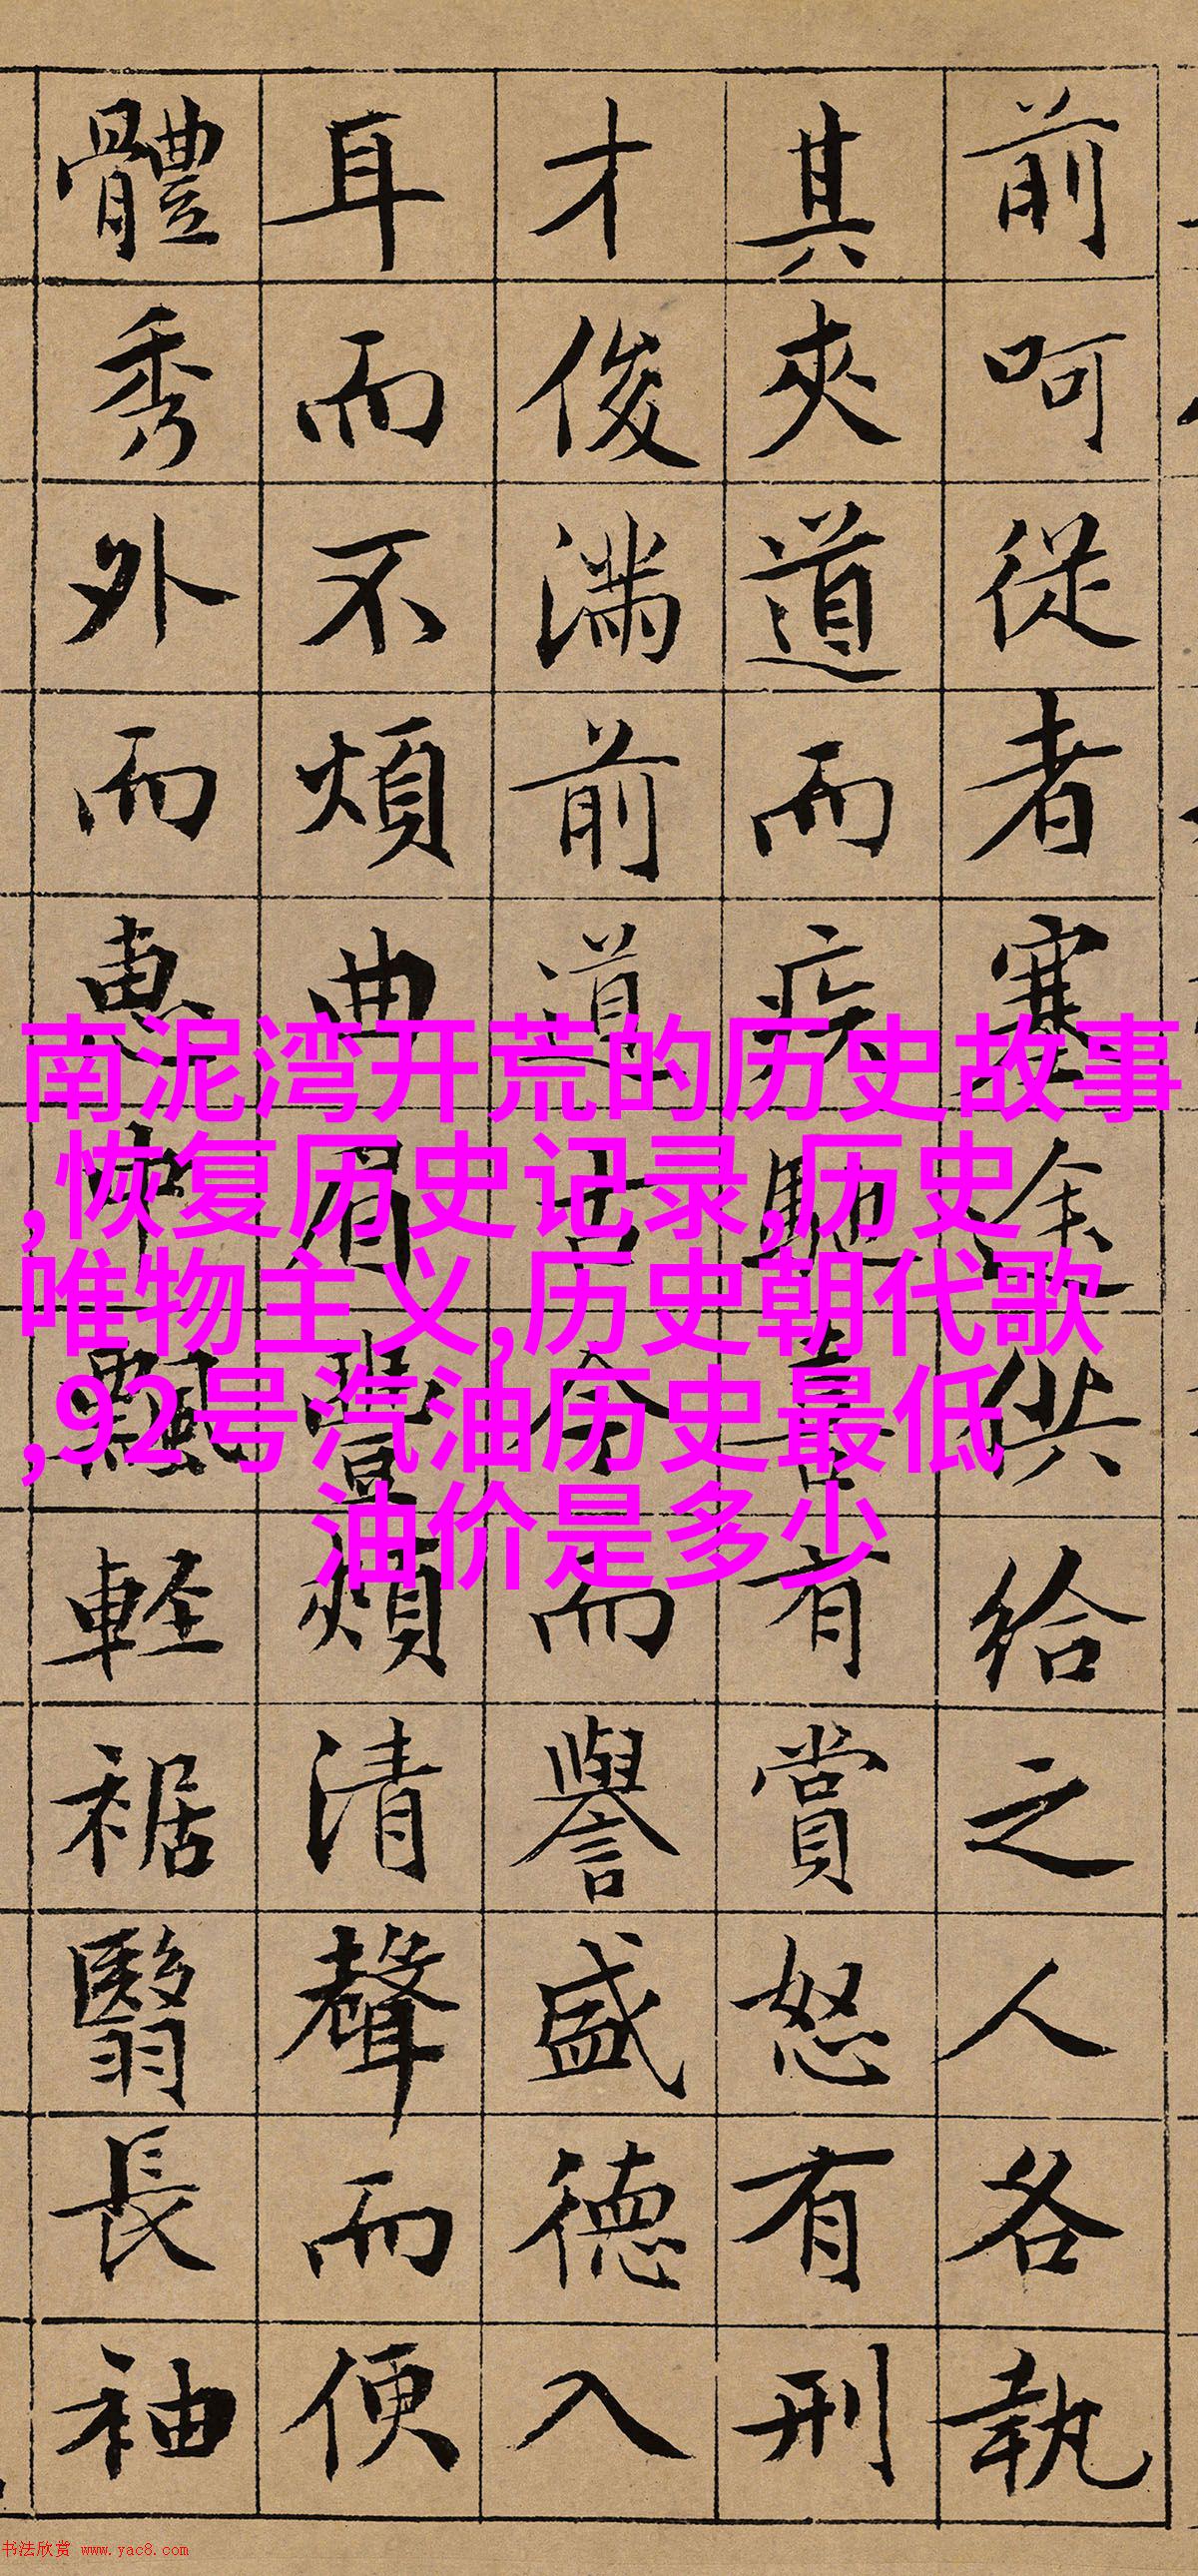 前呵從者塞途供給之人各執
其夾道而疾馳喜有賞怒有刑
才俊满前道古今而譽盛德入
耳而不煩曲眉豐頰清聲而便
體秀外而惠中飄輕裾翳長袖
南泥湾开荒的历史故事
,恢复历史记录,历史
唯物主义,历史朝代歌
,92号汽油历史最低
油价是多少
书法欣赏 www.yac8.com